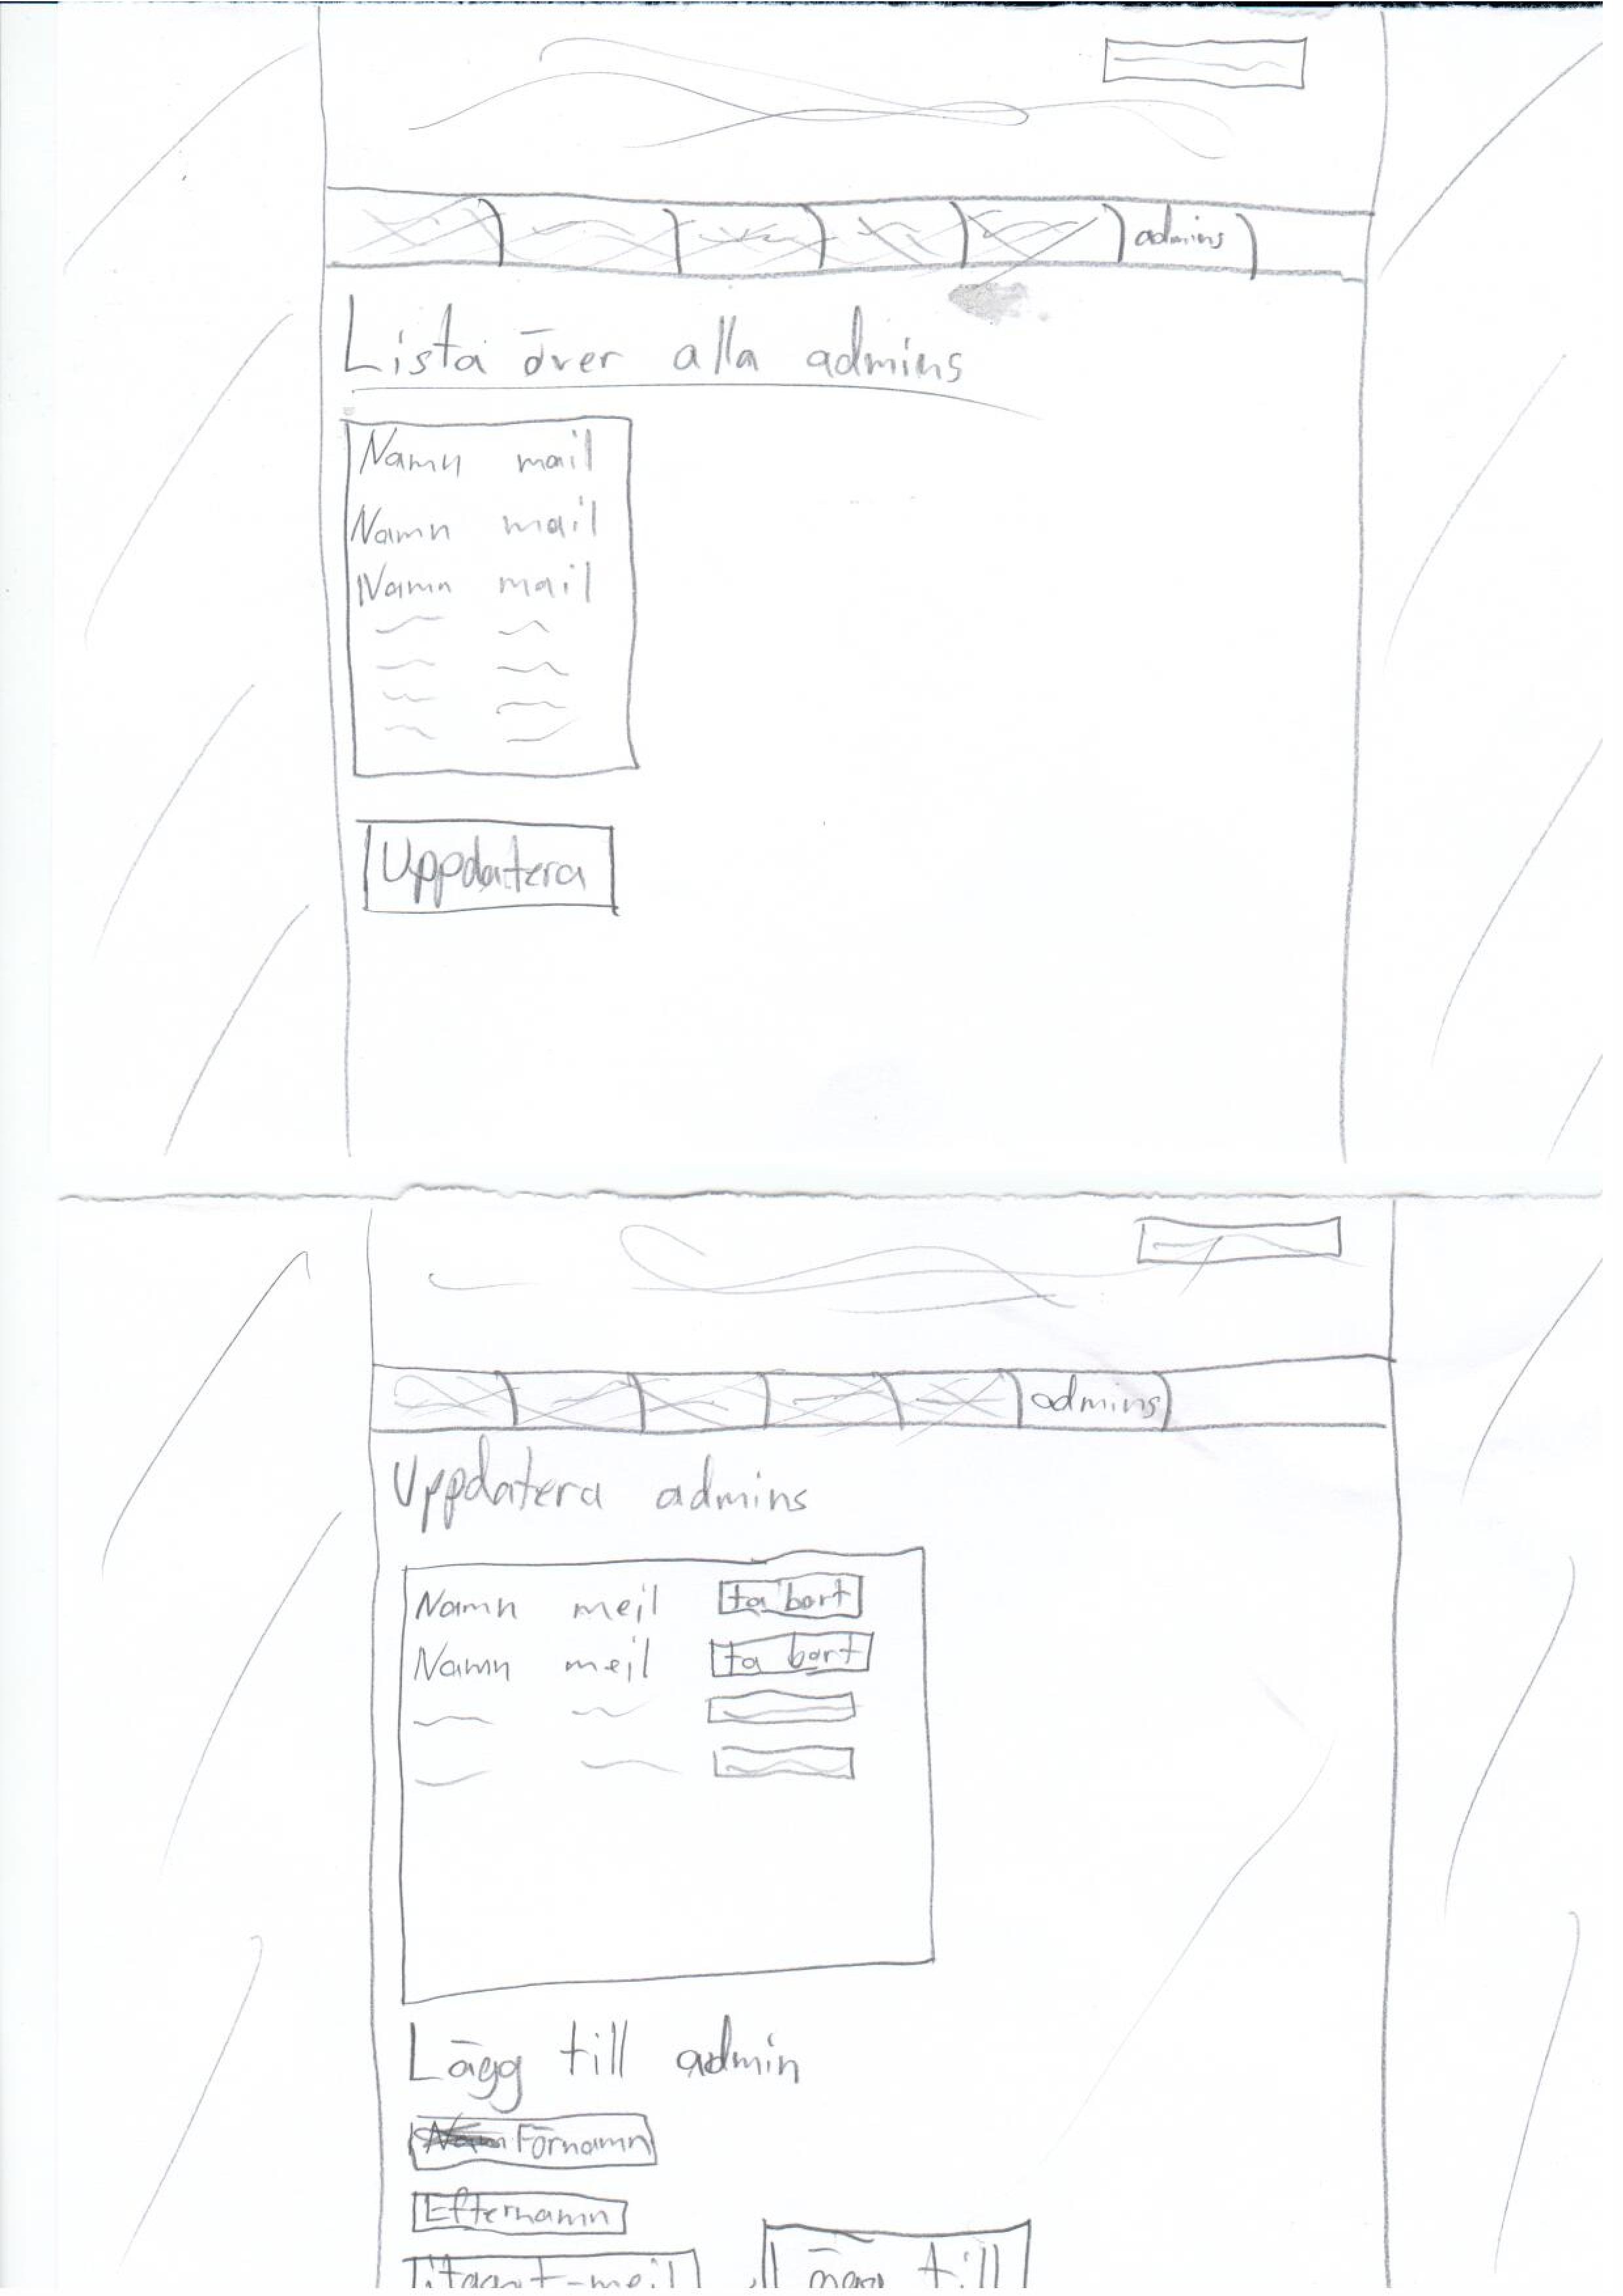 admins
Lista över alla admins
Namn mail
Namn mail
Namn mail
Uppdatera
admins
Uppdatera admins
Namn mejl ta bort
Namn mejl ta bort
Lägg till admin
Förnamn
Efternamn
Lägg till